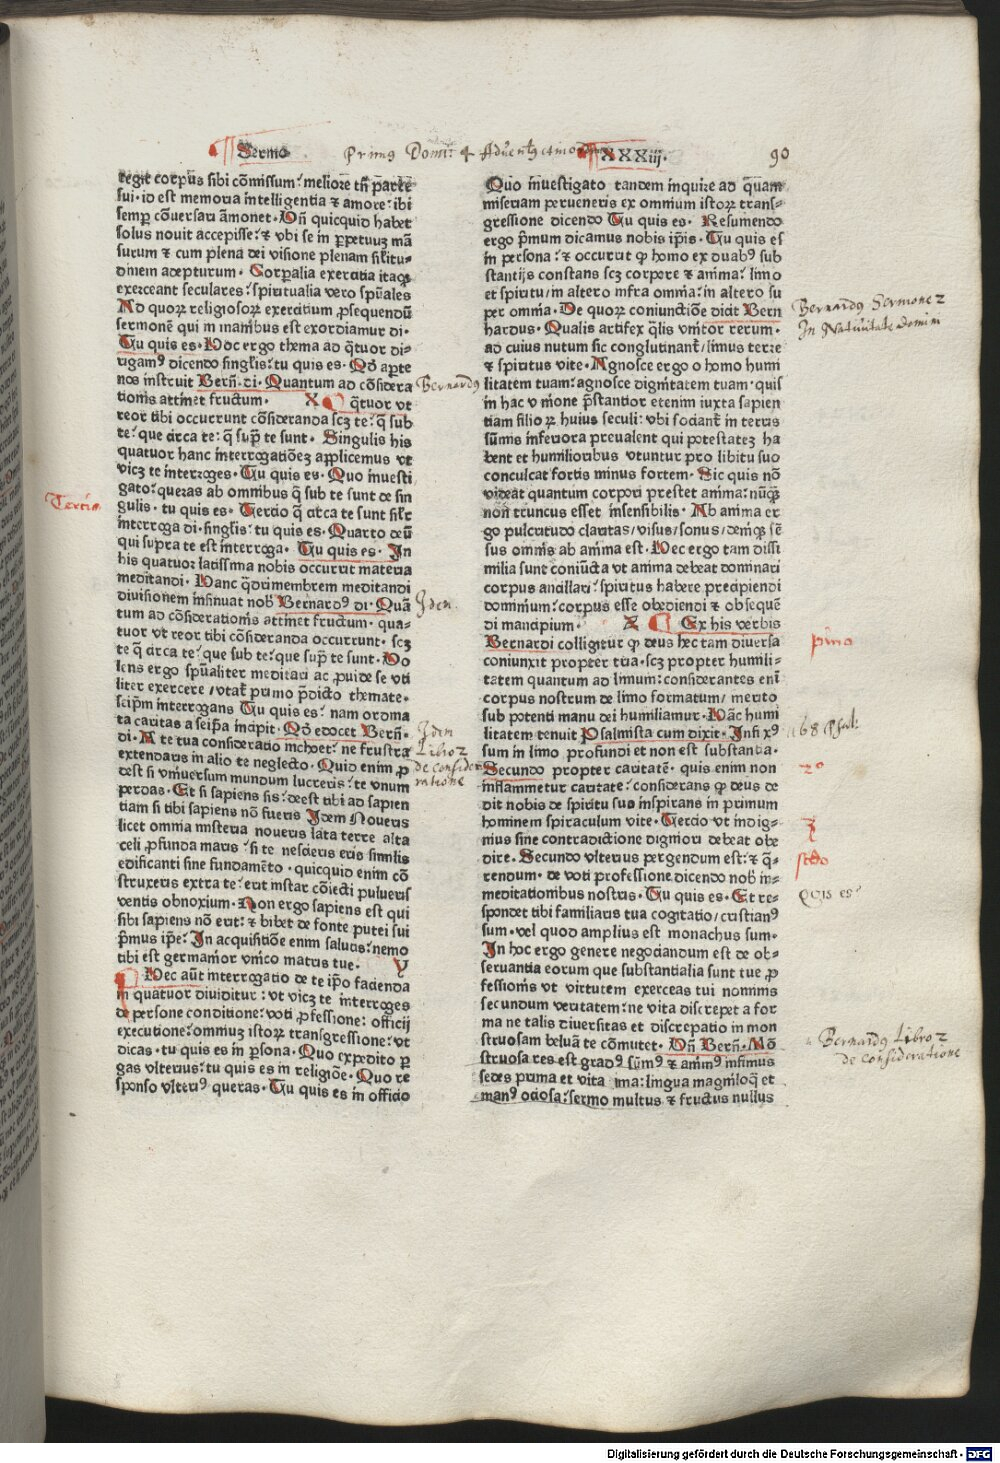 Sermo
XXXiij.
90
regit corpus sibi cōmissum? meliore tñ parte
sui·id est memoria intelligentia ⁊ amore?ibi
semp cōuersari āmonet·Dñ quicquid habet
solus nouit accepisse?⁊ vbi se in ꝑpetuuꝫ mā
surum ⁊ cum plena dei visione plenam sil'itu⸗
dinem adepturum·Corꝑalia exercitia itaqꝫ
exerceant seculares?spiritualia vero spūales
Ad quoꝝ religiosoꝝ exercitium ꝓsequendū
sermonē qui in manibus est exordiamur di·
Tu quis es·Hoc ergo thema ad q̄tuor di⸗
rigamꝰ dicendo singlis?tu quis es·Qđ aꝑte
nos instruit Berñ·di·Quantum ad cōsidera
tionis attinet fructum· X q̄tuor vt
reor tibi occurrunt cōsideranda scꝫ te?q̄ sub
te?que circa te?q̄ sup̄ te sunt·Singulis his
quatuor hanc interrogatiōeꝫ applicemus vt
vicꝫ te interroges·Tu quis es·Quo inuesti
gato?queras ab omnibus q̄ sub te sunt de sin
gulis·tu quis es·Tercio q̄ circa te sunt sil'r
interroga di·singlis?tu quis es·Quarto deū
qui supra te est interroga·Tu quis es·In
his quatuor latissima nobis occurrit materia
meditandi·Hanc q̄drimembrem meditandi
diuisionem insinuat nob̄ Bernardꝰ di·Quā
tum ad cōsiderationis attinet fructum·qua⸗
tuor vt reor tibi cōsideranda occurrunt·scꝫ
te q̄ circa te?que sub te?que sup̄ te sunt·Uo
lens ergo spūaliter meditari ac ꝓuide se vti
liter exercere/vtat' primo p̄dicto themate·
seip̄m interrogans Tu quis es?nam ordina
ta caritas a seip̄a incipit·Qđ edocet Berñ·
di·A te tua consideratio inchoet?ne frustra
extendaris in alio te neglecto·Quid enim ꝓ
dest si vniuersum mundum lucreris?te vnum
perdas·Et si sapiens sis?deest tibi ad sapien
tiam si tibi sapiens nō fueris Idem Noueris
licet omnia misteria noueris lata terre alta
celi ꝓfunda maris?si te nescieris eris similis
edificanti sine fundamēto·quicquid enim cō
struxeris extra te?erit instar cōiecti pulueris
ventis obnoxium·Non ergo sapiens est qui
sibi sapiens nō erit?⁊ bibet de fonte putei sui
p̄mus ip̄e?In acquisitiōe enim salutis?nemo
tibi est germanior vnico matris tue· Y
Hec aūt interrogatio de te ip̄o facienda
in quatuor diuiditur:vt vicꝫ te interroges
de persone conditione?voti ꝓfessione:officij
executione?omniuꝫ istoꝝ transgressione?vt
dicas·tu quis es in p̄sona·Quo expedito ꝑ
gas vlterius?tu quis es in religiōe·Quo re
sponso vlteriꝰ queras·Tu quis es in officio
Quo inuestigato tandem inquire ad quam
miseriam perueneris ex omnium istoꝝ trans⸗
gressione dicendo Tu quis es·Resumendo
ergo p̄mum dicamus nobis ip̄is·Tu quis es
in persona?⁊ occurrit ꝙ homo ex duabꝰ sub
stantijs constans scꝫ corpore ⁊ anima?limo
et spiritu/in altero infra omnia?in altero su
per omnia·De quoꝝ coniunctiōe dicit Bern
hardus·Qualis artifex q̄lis vnitor rerum·
ad cuius nutum sic conglutinant'/limus terre
⁊ spiritus vite·Agnosce ergo o homo humi
litatem tuam?agnosce dignitatem tuam·quis
in hac vnione p̄stantior etenim iuxta sapien
tiam filioꝝ huius seculi?vbi sociant' in terris
sūmis inferiora preualent qui potestateꝫ ha
bent et humilioribus vtuntur pro libitu suo
conculcat fortis minus fortem·Sic quis nō
videat quantum corpori prestet anima?nūqꝫ
non truncus esset insensibilis·Ab anima er
go pulcritudo claritas/visus/sonus/deniqꝫ sē
sus omnis ab anima est·Hec ergo tam dissi
milia sunt coniūcta vt anima debeat dominari
corpus ancillari?spiritus habere precipiendi
dominium?corpus esse obediendi ⁊ obsequē
di mancipium· Z Ex his verbis
Bernardi colligitur ꝙ deus hec tam diuersa
coniunxit propter tria·scꝫ propter humili⸗
tatem quantum ad limum?considerantes eni
corpus nostrum de limo formatum/merito
sub potenti manu dei humiliamur·Hāc humi
litatem tenuit Psalmista cum dixit·Infixꝰ
sum in limo profundi et non est substantia·
Secundo propter caritatē·quis enim non
inflammetur caritate?considerans ꝙ deus de
dit nobis de spiritu suo inspirans in primum
hominem spiraculum vite·Tercio vt indig⸗
nius sine contradictione digniori debeat obe
dire·Secundo vlterius pergendum est?⁊ q̄⸗
rendum·de voti professione dicendo nob̄ in⸗
meditationibus nostris·Tu quis es·Et re⸗
spondet tibi familiaris tua cogitatio/cristianꝰ
sum·vel quod amplius est monachus sum·
In hoc ergo genere negociandum est de ob⸗
seruantia eorum que substantialia sunt tue ꝓ
fessionis vt virtutem exerceas tui nominis
secundum veritatem?ne vita discrepet a for
ma ne talis diuersitas et discrepatio in mon
struosam beluā te cōmutet·Dñ Berñ·Mō
struosa res est gradꝰ sūmꝰ ⁊ animꝰ infimus
sedes prima et vita ima:lingua magniloq̄ et
manꝰ ociosa?sermo multus ⁊ fructus nullus
Tertio
Bernardꝰ
Idem
Idem
Libro 2
de conside
ratione
Bernardꝰ Sermone 2
In Natiuitate domini
pimo
68 Psal:
2°
3
scdo
QUIS es?
Bernardꝰ Libro 2
de consideratione
Digitalisierung gefördert durch die Deutsche Forschungsgemeinschaft - DFG